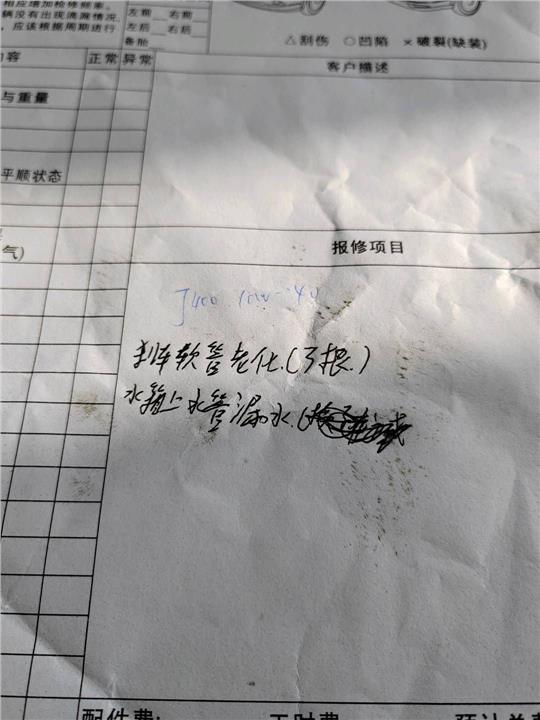 相应增加检修频率。
辆没有出现滴漏情况,
，应该根据周期进行
左前 右前
左后 右后
备胎
△刮伤 ○凹陷 ×破裂(缺装)
内容 正常 异常 客户描述
与重量
平顺状态
报修项目
气)
J400 10W-40
刹车软管老化.(3根.)
水箱上水管漏水.(
配件费: 工时费